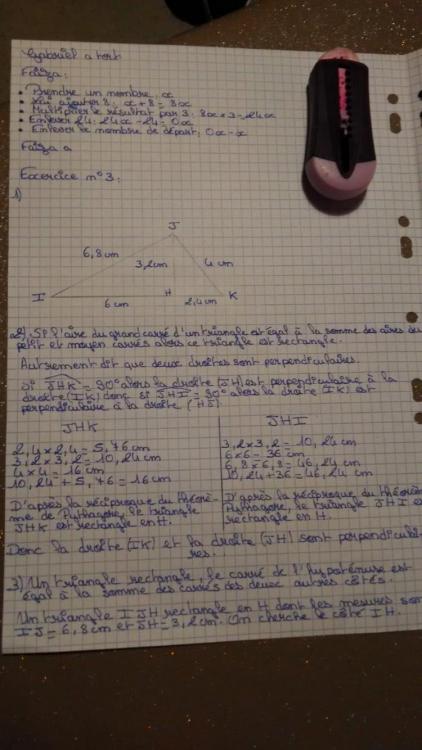 Gabriel a tort
Faïza:
• Prendre un nombre x
• Lui ajouter 8: x + 8 = 8x
• Multiplier le résultat par 3: 8x × 3 = 24x
• Enlever 24: 24x - 24 = 0x
• Enlever le nombre de départ: 0x - x
Faïza a
Exercice n°3:
1)
J
6,8 cm
3,2cm
4 cm
I
H
K
6 cm
2,4cm
2) Si l'aire du grand carré d'un triangle est égal à la somme des aires du
petit et moyen carrés alors ce triangle est rectangle.
Autrement dit que deux droites sont perpendiculaires.
Si JHK = 90° alors la droite (JH) est perpendiculaire à la
droite (IK) donc si JHI = 90° alors la droite (IK) est
perpendiculaire à la droite (HJ).
JHK
2,4 × 2,4 = 5,76 cm
3,2 × 3,2 = 10,24 cm
4 × 4 = 16 cm
10,24 + 5,76 = 16 cm
D'après la réciproque du théorè-
me de Pythagore, le triangle
JHK est rectangle en H.
JHI
3,2 × 3,2 = 10,24 cm
6 × 6 = 36 cm
6,8 × 6,8 = 46,24 cm
10,24 + 36 = 46,24 cm
D'après la réciproque du théorème
Pythagore, le triangle JHI est
rectangle en H.
Donc la droite (IK) et la droite (JH) sont perpendiculai-
res.
3) Un triangle rectangle, le carré de l'hypoténuse est
égal à la somme des carrés des deux autres côtés.
Un triangle IJH rectangle en H dont les mesures son
IJ = 6,8cm et JH = 3,2cm. On cherche le côté IH.